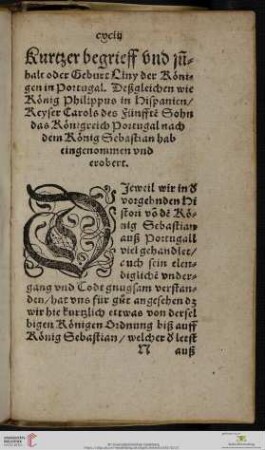 cxciij
Kurtzer begrieff vnd jñ-
halt oder Geburt Liny der Köni-
gen in Portugal. Deßgleichen wie
König Philippus in Hispanien/
Keyser Carols des Fünfftē Sohn
das Königreich Portugal nach
dem König Sebastian hab
eingenommen vnd
erobert.
DJeweil wir in d
vorgehnden Hi
stori vō dē Kö-
nig Sebastian
auß Portugall
viel gehandlet/
euch sein elen-
diglichē vnder-
gang vnd Todt gnugsam verstan-
den/ hat vns für gůt angesehen dz
wir hie kurtzlich ettwas von dersel
bigen Königen Ordnung biß auff
König Sebastian/ welcher d letst
N auß
UNIVERSITÄTS-
BIBLIOTHEK
HEIDELBERG